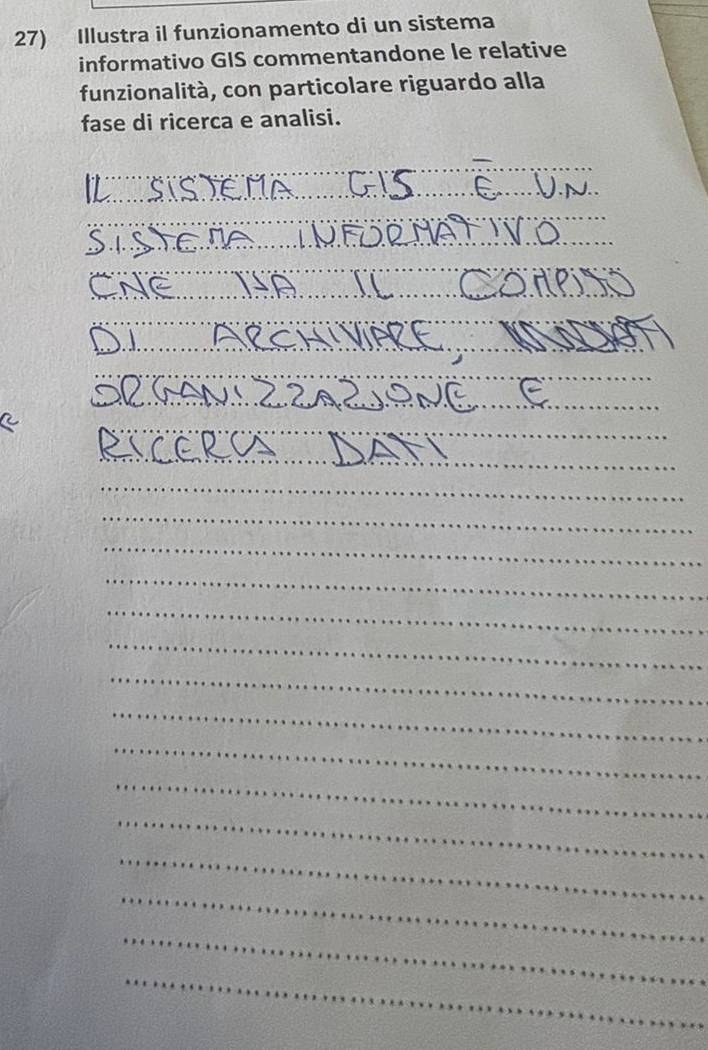 27) Illustra il funzionamento di un sistema
informativo GIS commentandone le relative
funzionalità, con particolare riguardo alla
fase di ricerca e analisi.
IL SISTEMA GIS È UN
SISTEMA INFORMATIVO
CHE HA IL COMPITO
DI ARCHIVIARE,
ORGANIZZAZIONE E
RICERCA DATI